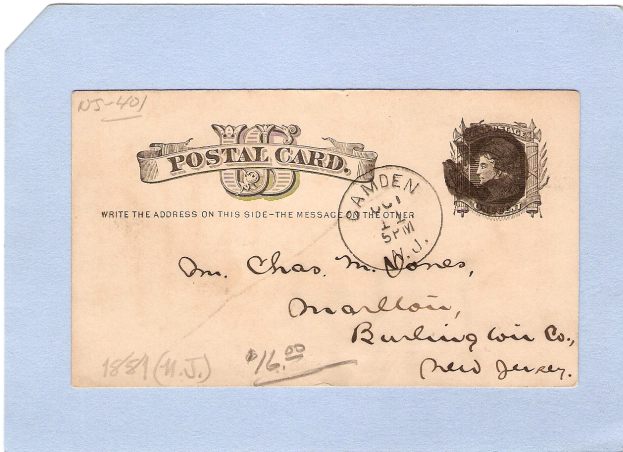 NJ-401
US
POSTAL CARD.
WRITE THE ADDRESS ON THIS SIDE-THE MESSAGE ON THE OTHER
CAMDEN
11
5PM
N.J.
POSTAGE
Mr. Chas. M. Jones,
Marlton,
Burlington Co.,
New Jersey.
1881 (N.J.)
$16.00